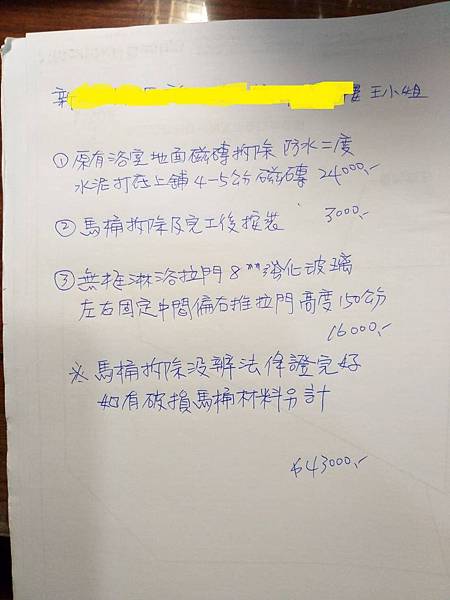 新 樓 王小姐
① 原有浴室地面磁磚拆除 防水二度
水泥打底上舖4-5公分磁磚 24000,-
② 馬桶拆除及完工後按裝 3000,-
③ 無框淋浴拉門 8mm強化玻璃
左右固定中間偏右推拉門 高度150公分
16000,-
※ 馬桶拆除没辦法保證完好
如有破損馬桶材料另計
$43000,-